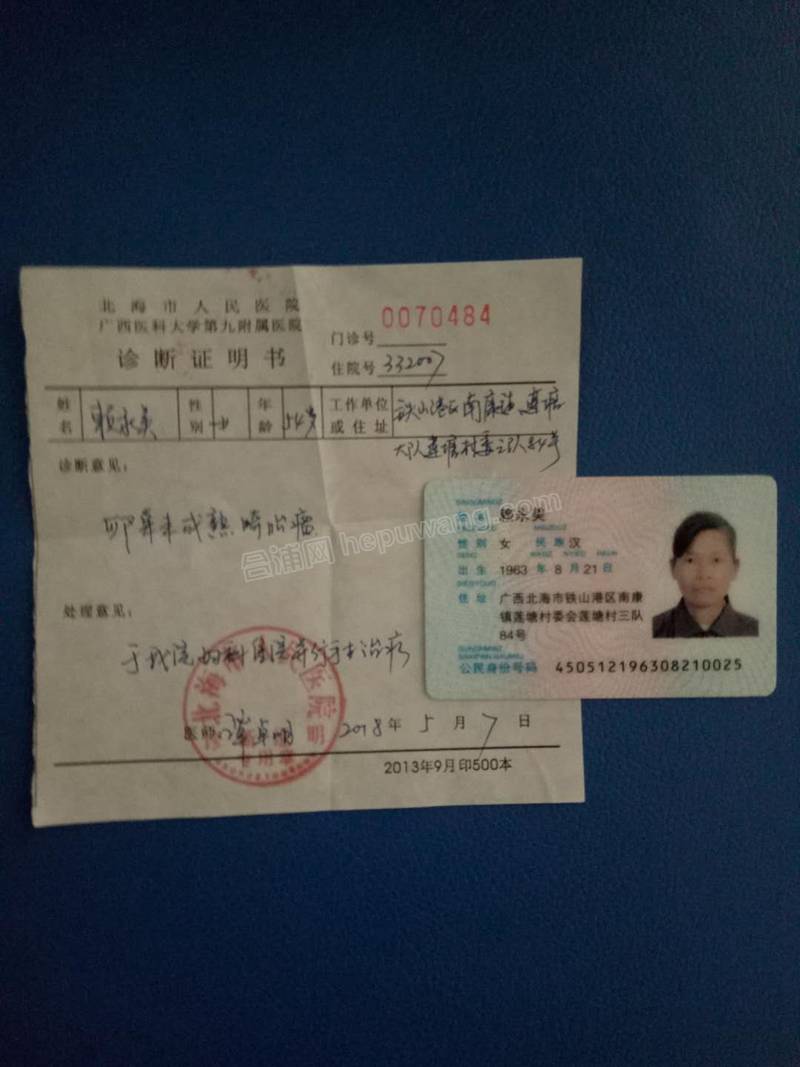 北海市人民医院
广西医科大学第九附属医院
诊断证明书
0070484
门诊号
住院号 332007
姓名 赖永英 性别 女 年龄 54岁 工作单位或住址 铁山港区南康镇莲塘
大队莲塘村委三队84号
诊断意见：
卵巢未成熟畸胎瘤
处理意见：
于我院妇科住院行手术治疗
医师 2018年5月7日
2013年9月印500本
姓名
性别 女 民族 汉
出生 1963年8月21日
住址 广西北海市铁山港区南康
镇莲塘村委会莲塘村三队
84号
公民身份号码 450512196308210025
合浦网 hepuwang.com